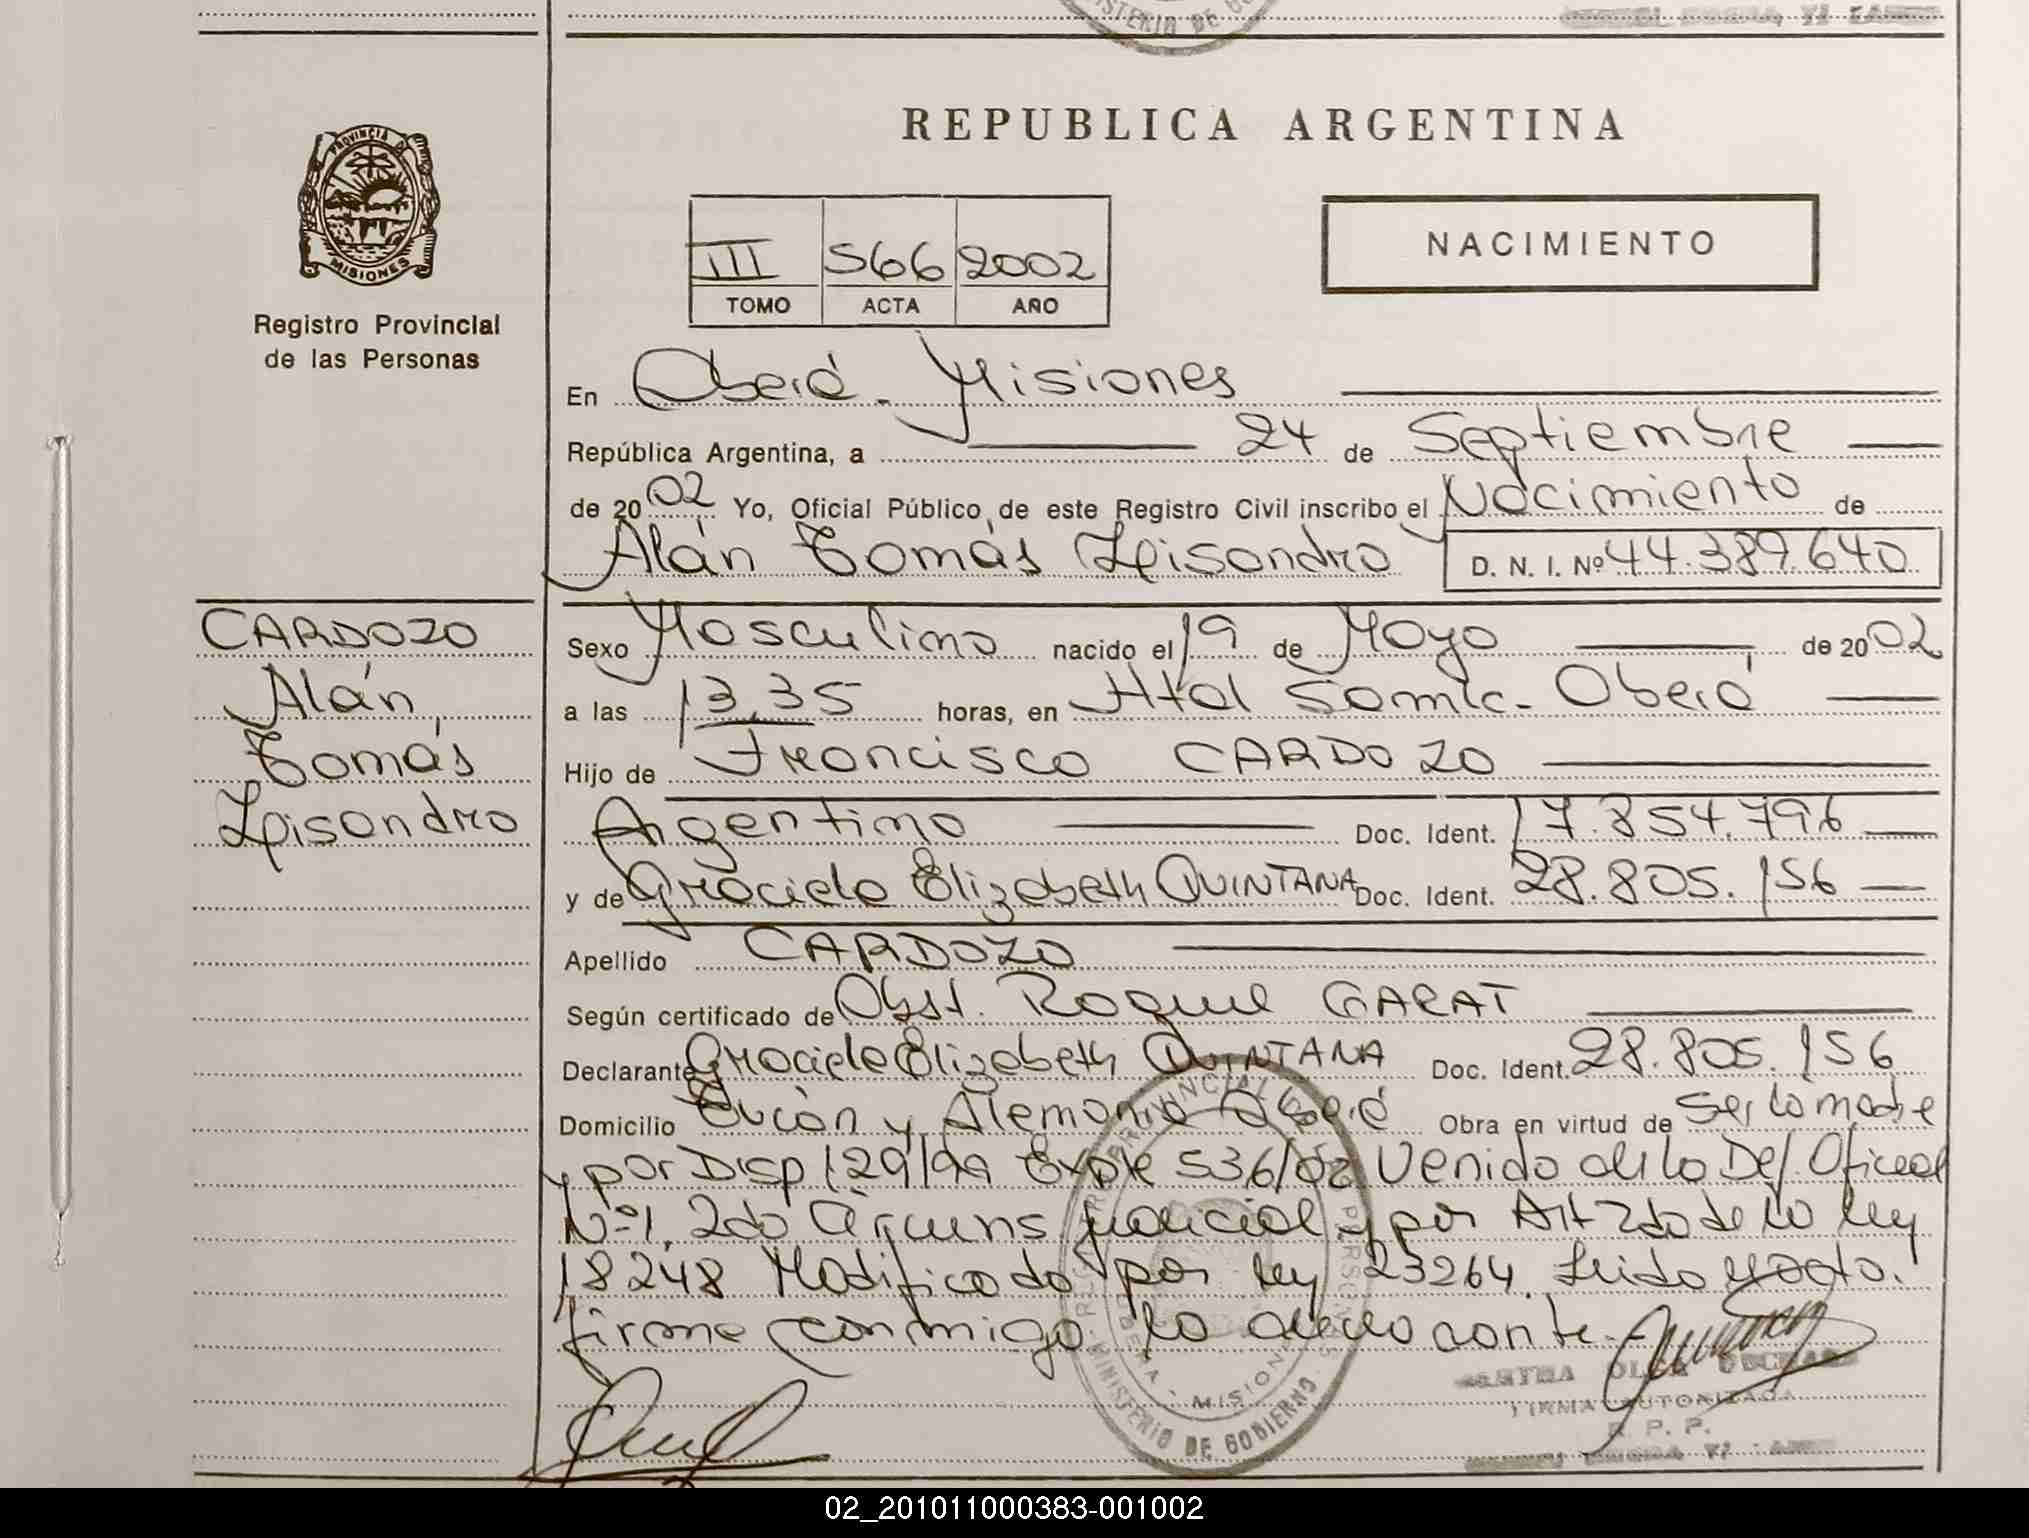 MINISTERIO DE
PROVINCIA DE
MISIONES
Registro Provincial
de las Personas
REPUBLICA ARGENTINA
NACIMIENTO
III 566 2002
TOMO ACTA AÑO
En Oberá - Misiones
República Argentina, a 24 de Septiembre
de 2002 Yo, Oficial Público de este Registro Civil inscribo el Nacimiento de
Alán Tomás Lisandro D. N. I. Nº 44.389.640
CARDOZO
Alán,
Tomás
Lisandro
Sexo Masculino nacido el 19 de Mayo de 2002
a las 13,35 horas, en Htal Samic - Oberá
Hijo de Francisco CARDOZO
Argentino Doc. Ident. 17.854.796
y de Graciela Elizabeth QUINTANA Doc. Ident. 28.805.156
Apellido CARDOZO
Según certificado de Obst. Roque GARAT
Declarante Graciela Elizabeth QUINTANA Doc. Ident. 28.805.156
Domicilio y Alemania Oberá Obra en virtud de ser la madre
y por Disp 129/99 Expte 536/02 Venido de la Def. Oficial
Nº 1, 2da Circuns judicial y por Art 2do de la ley
18248 Modificado por ley 23264. Leido y acta.
firma conmigo la declarante.
REGISTRO PROVINCIAL DE LAS PERSONAS
MINISTERIO DE GOBIERNO
MISIONES
MARTHA OLGA
FIRMA AUTORIZADA
R. P. P.
02_201011000383-001002